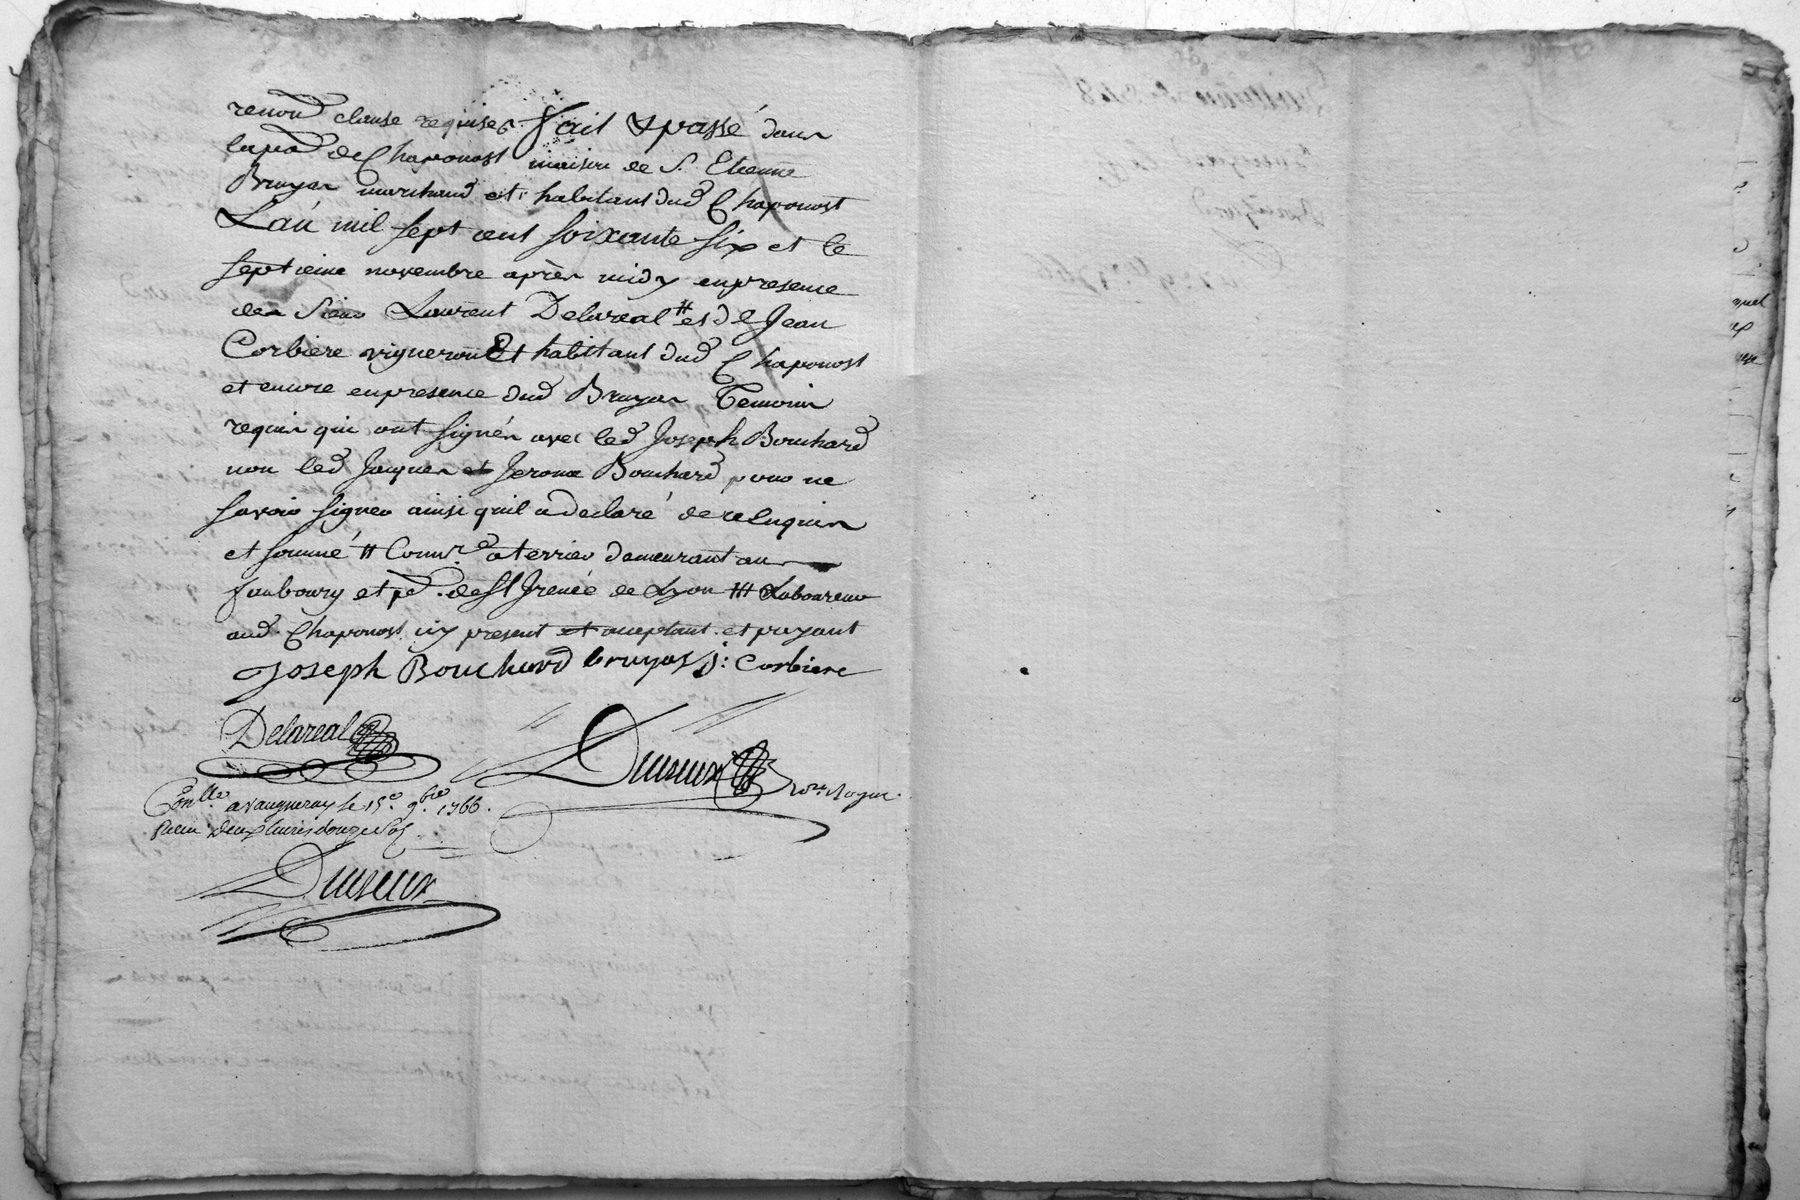 renond clause requises fait & passé dans
lapad de Chaponost maison de S. Etienne
Bruyas marchand et habitant dud Chaponost
L'an mil sept cent soixante six et le
septieme novembre après midy en presence
des Sieur Laurent Delareal # et de Jean
Corbiere vigneron Et habitant dud Chaponost
et encore en presence dud Bruyas Temoins
requis qui ont signés avec led Joseph Bouchard
non led Jacques et Jerome Bouchard pour ne
savoir signer ainsi quil a declaré de ce enquis
et sommé # Comre a terrier demeurant au
faubourg et pe. de St Irenée de Lyon ## Laboureur
aud Chaponost icy present et acceptant et payant
Joseph Bouchard bruyas j: Corbiere
Delareal
Dumeux Nore Royal
Conllé a vaugneray le 15e 9bre 1766.
Recu deux livres douze sols
Dumeux